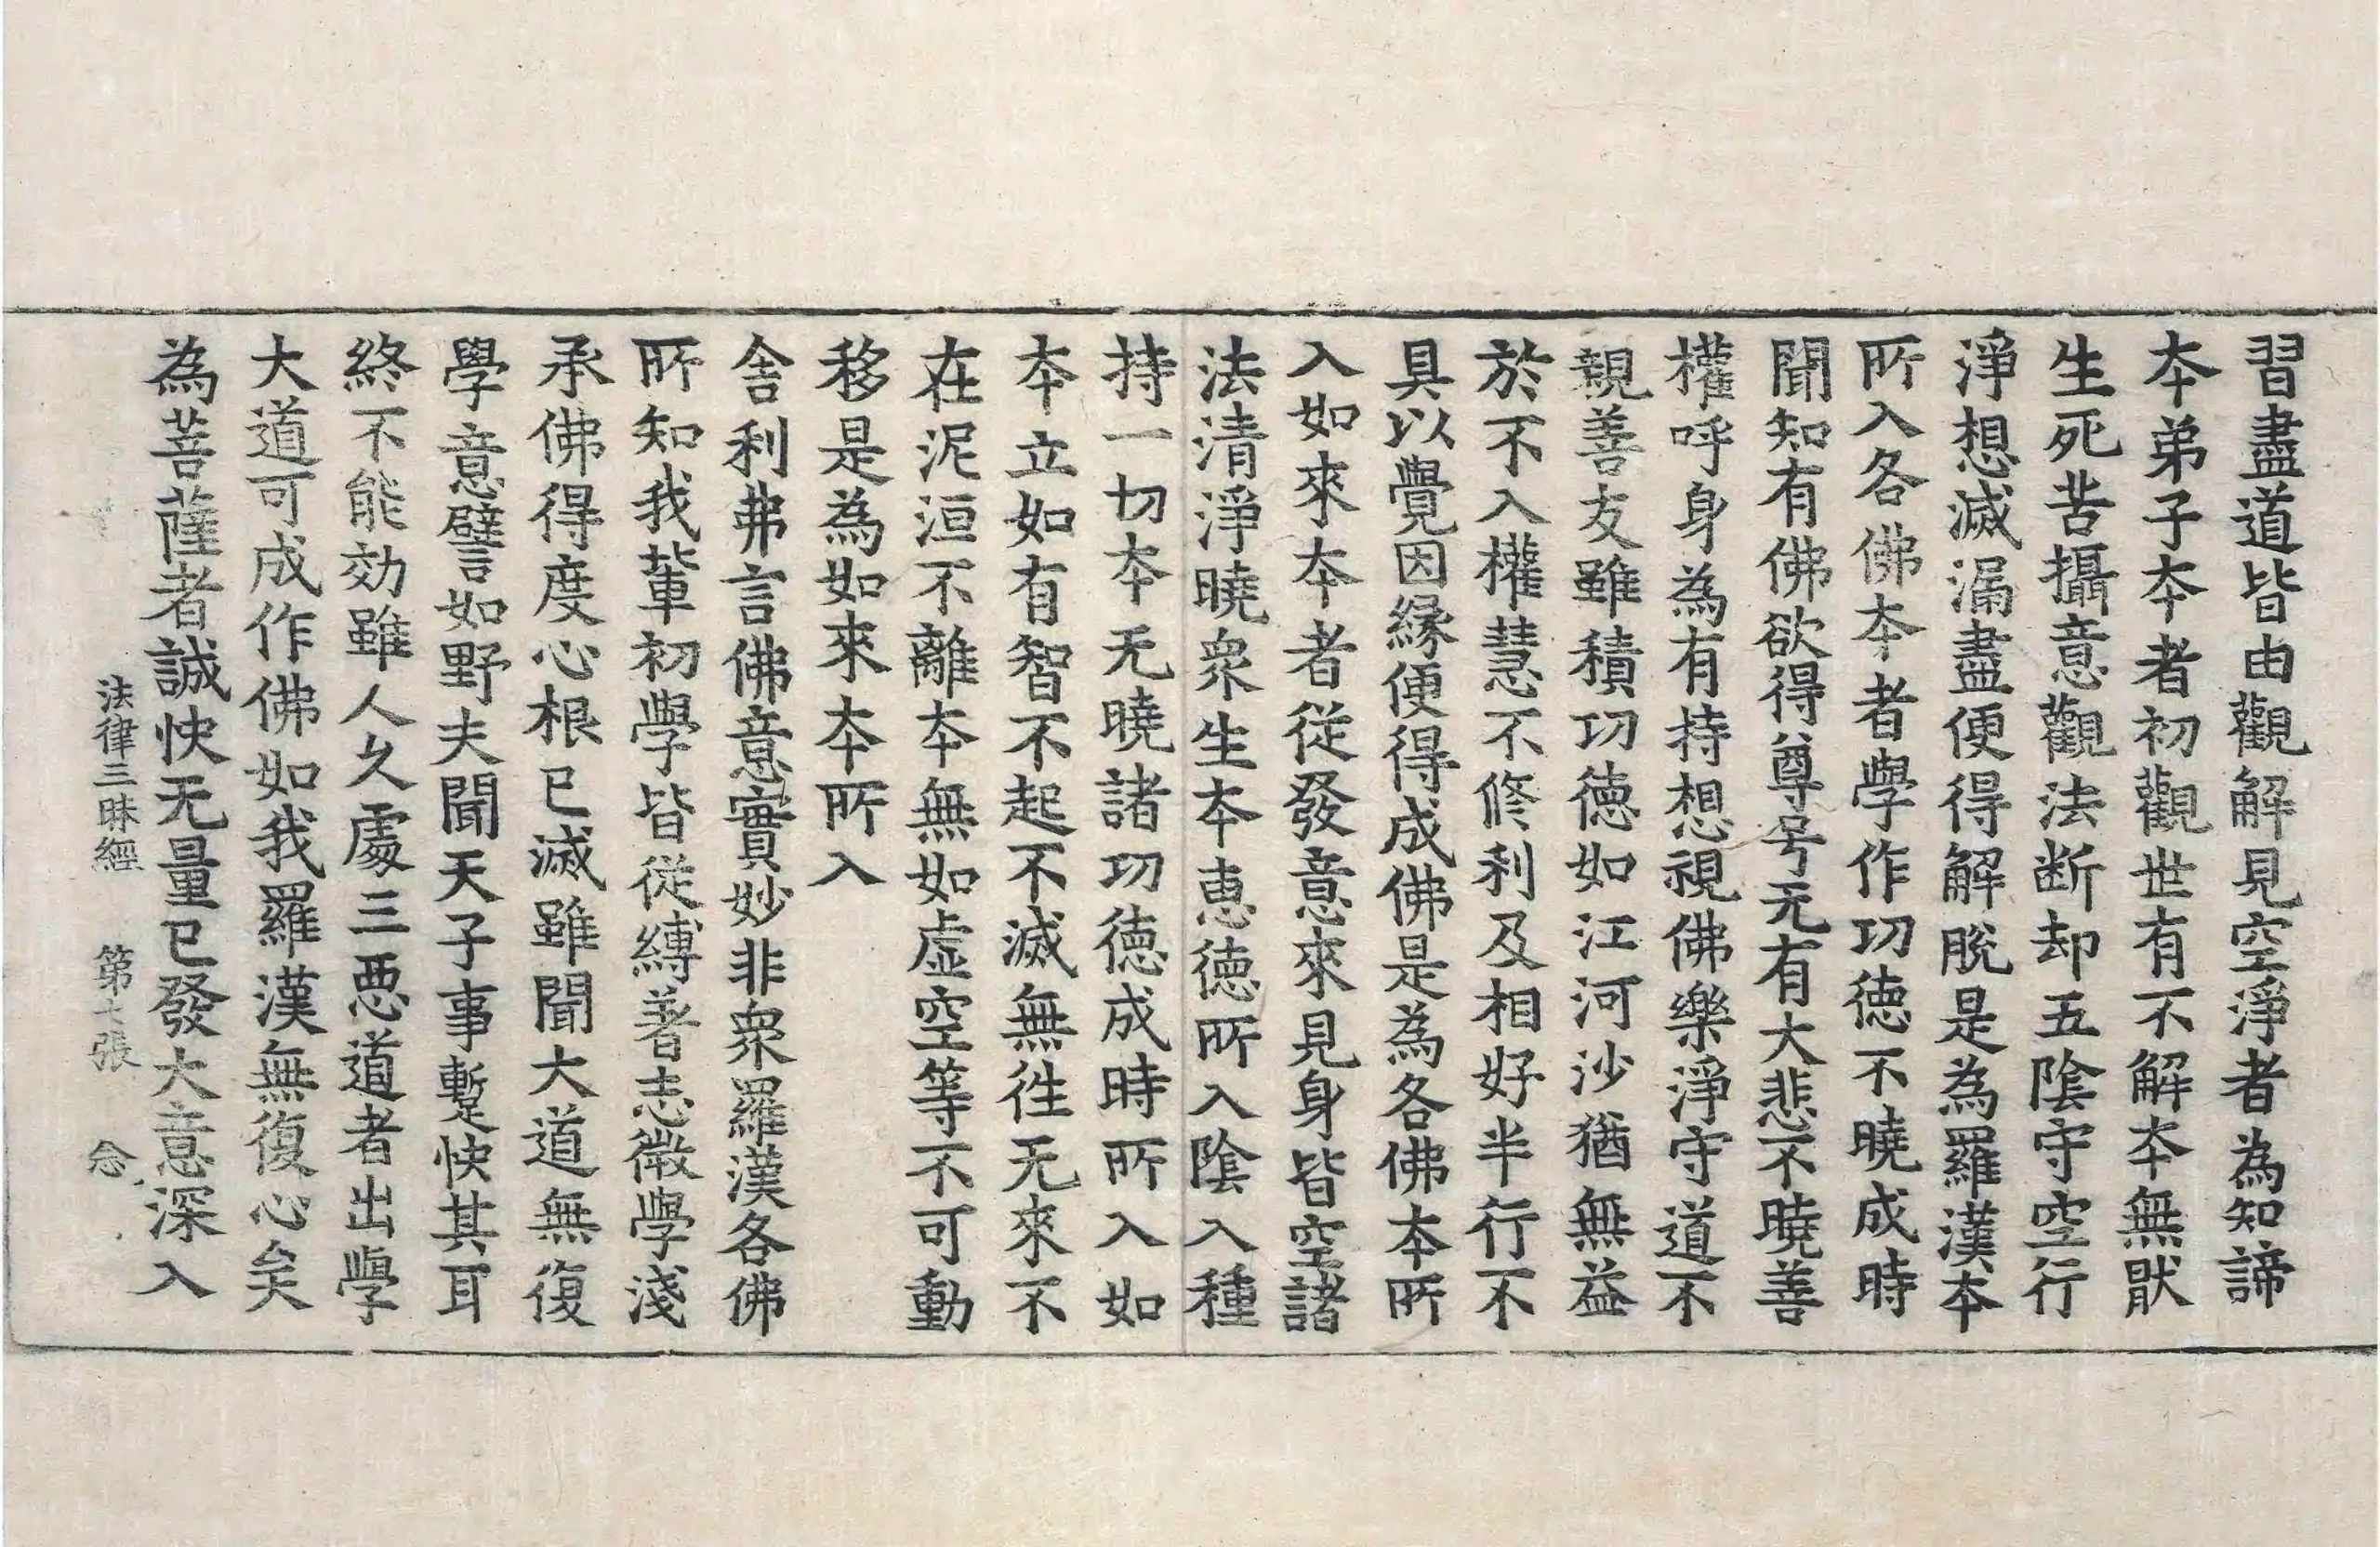 習盡道皆由觀解見空淨者為知諦
夲弟子夲者初觀世有不解夲無猒
生死苦攝意觀法断却五陰守空行
淨想滅漏盡便得解脫是為羅漢夲
所入各佛夲者學作功德不曉成時
聞知有佛欲得尊号无有大悲不曉善
權呼身為有持想視佛樂淨守道不
親善友雖積功德如江河沙猶無益
於不入權慧不修利及相好半行不
具以覺因緣便得成佛是為各佛本所
入如來夲者從發意來見身皆空諸
法清淨曉衆生夲恵德所入陰入種
持一切夲无曉諸功德成時所入如
夲立如有智不起不滅無徃无來不
在泥洹不離夲無如虛空等不可動
移是為如來夲所入
舍利弗言佛意實妙非衆羅漢各佛
所知我輩初學皆從縛著志微學淺
承佛得度心根已滅雖聞大道無復
學意譬如野夫聞天子事暫快其耳
終不能効雖人久處三惡道者出學
大道可成作佛如我羅漢無復心矣
為菩薩者誠快无量已發大意深入
法律三昧經 第七張 念